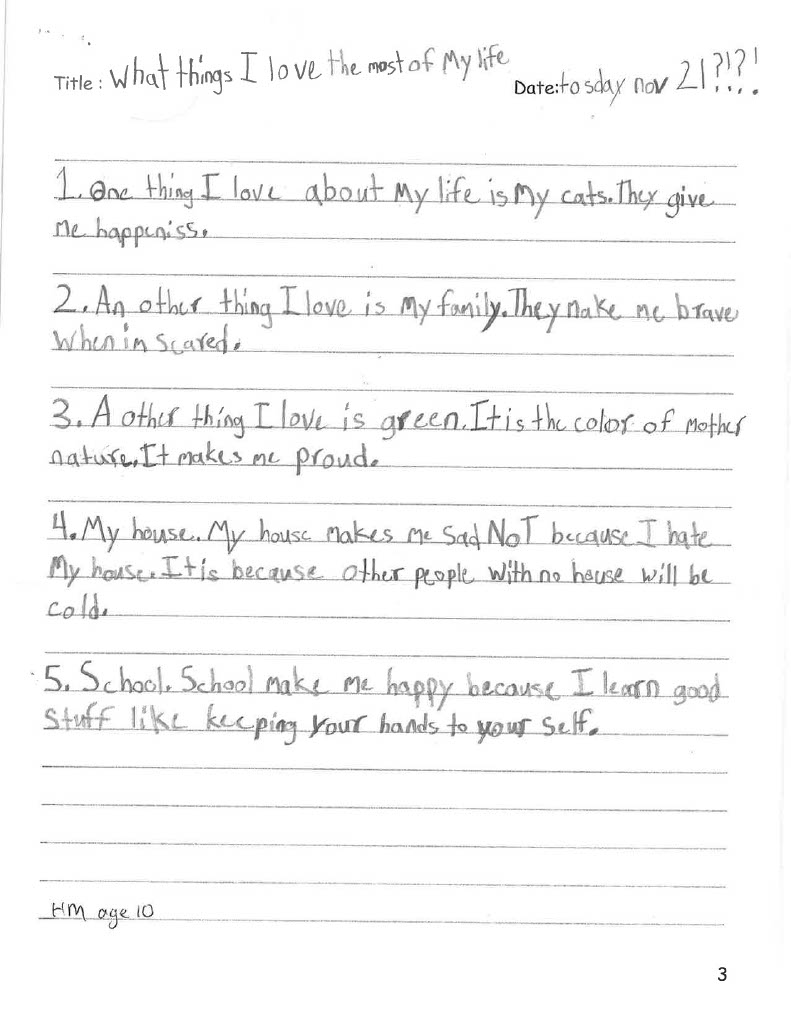 Title: What things I love the most of My life
Date: tosday nov 21?!?!
1. One thing I love about My life is My cats. They give
me happeniss.
2. An other thing I love is My family. They make me brave
When im scared.
3. A other thing I love is green. It is the color of Mother
nature. It makes me proud.
4. My house. My house makes me sad NOT because I hate
My house. It is because other people with no house will be
cold.
5. School. School make me happy because I learn good
stuff like keeping your hands to your self.
HM age 10
3